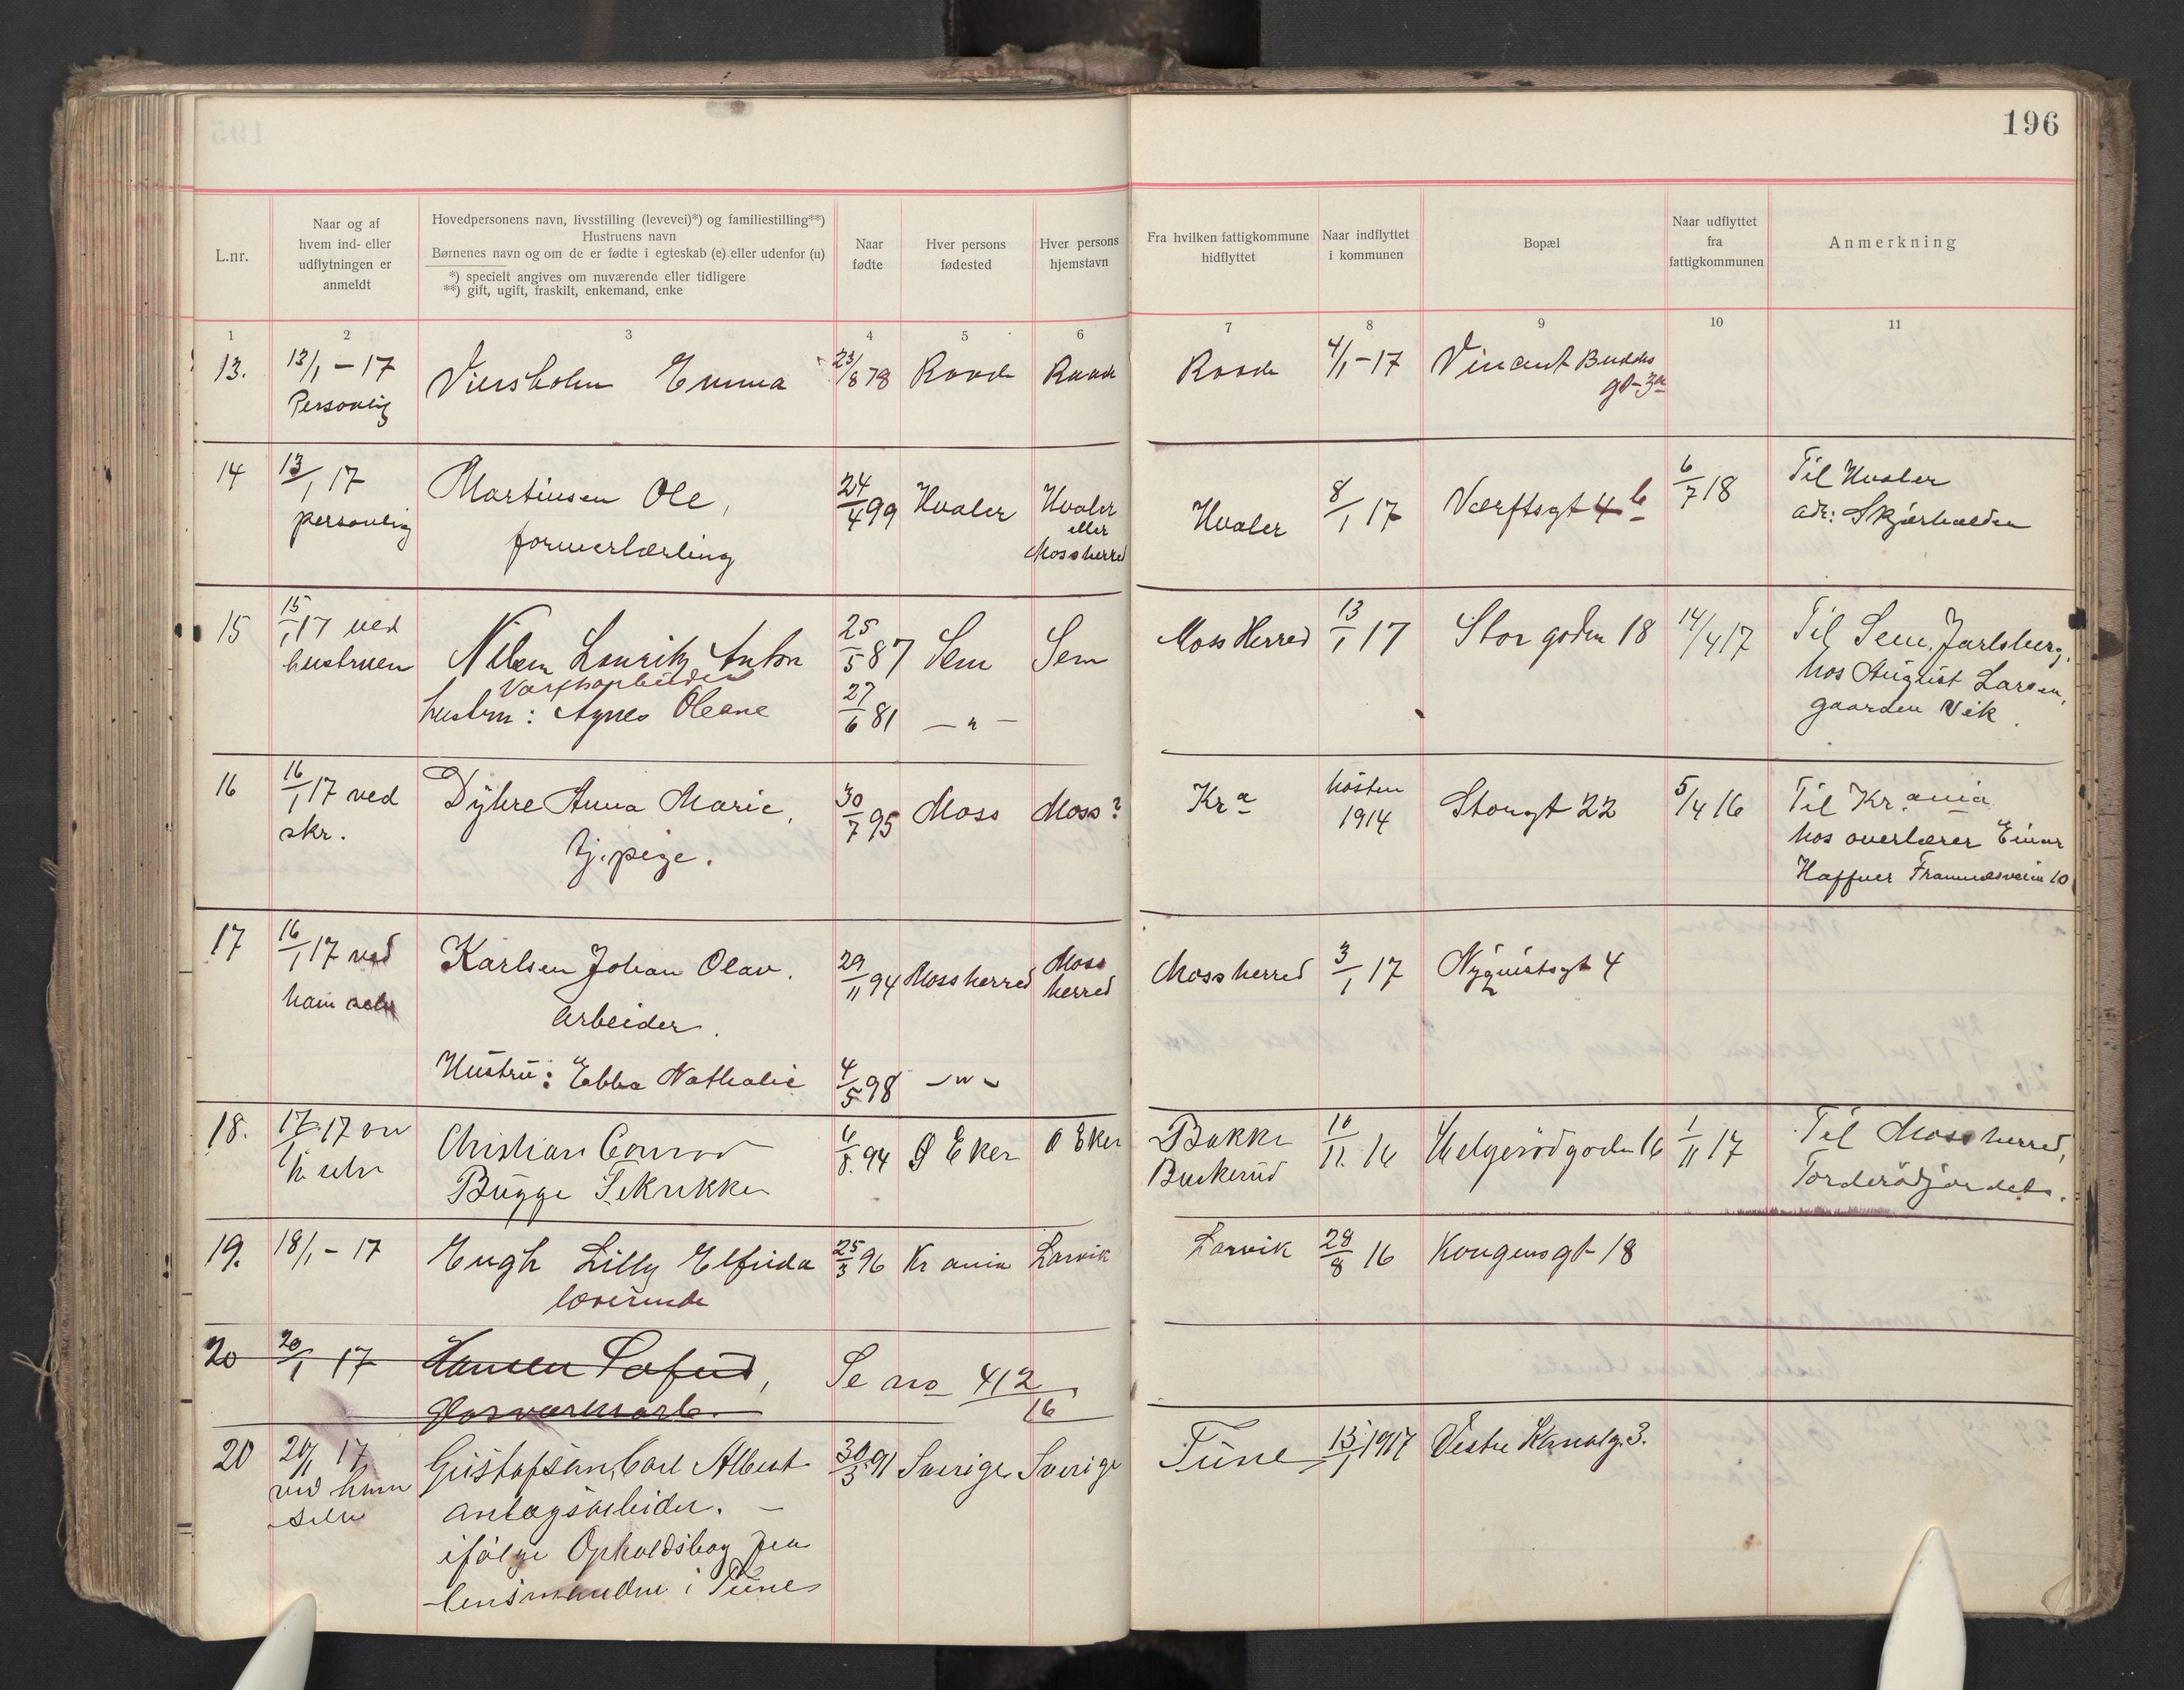 196
L.nr.
Naar og af
hvem ind- eller
udflytningen er
anmeldt
Hovedpersonens navn, livsstilling (levevei)*) og familiestilling**)
Hustruens navn
Børnenes navn og om de er fødte i egteskab (e) eller udenfor (u)
*) specielt angives om nuværende eller tidligere
**) gift, ugift, fraskilt, enkemand, enke
Naar
fødte
Hver persons
fødested
Hver persons
hjemstavn
Fra hvilken fattigkommune
hidflyttet
Naar indflyttet
i kommunen
Bopæl
Naar udflyttet
fra
fattigkommunen
Anmerkning
1 2 3 4 5 6 7 8 9 10 11
13. 13/1 - 17 Viersholm Emma 23/8 78 Raade Raade Raade 4/1 - 17 Vincent Buddes
Personlig gt 3a
14 13/1 17 Martinsen Ole, 24/4 99 Hvaler Hvaler Hvaler 8/1 17 Værftsgt 4 b 6/7 18 Til Hvaler
personlig formerlærling eller adr: Skjærhalden
Moss herred
15 15/1 17 ved Nilsen Lauritz Anton 25/5 87 Sem Sem Moss Herred 13/1 17 Stor gaden 18 14/4 17 Til Sem, Jarlsberg,
hustruen Værftsarbeider hos August Larsen,
hustru: Agnes Oleane 27/6 81 - " - gaarden Vik.
16 16/1 17 ved Dyhre Anna Marie, 30/7 95 Moss Moss? Kra høsten Storgt 22 5/4 16 Til Kr.ania
skr. tj. pige. 1914 hos overlærer Einar
Haffner Framnæsveien 10
17 16/1 17 ved Karlsen Johan Olav. 29/11 94 Moss herred Moss Moss herred 3/1 17 Nyquistsgt 4
ham selv arbeider. herred
Hustru: Ebba Nathalie 4/5 98 - " -
18. 17/1 17 ved Christian Conrad 6/8. 94 Ø Eker Ø Eker Bakke 10/11. 16 Helgerødgaden 16 1/11 17 Til Moss herred,
h. selv Bugge Tekrukken Buskerud Torderødjordet.
19. 18/1 - 17 Engh Lilly Elfrida 25/3 96 Kr ania Larvik Larvik 28/8 16 Kongensgt 18
lærerinde
20 20/1 17 Hansen Sofus, Se no 412/16
Glasværksarb.
20 20/1 17 Gustafsen, Carl Albert 30/3 91 Sverige Sverige Tune 15/1 1917 Vestre Kanalg. 3.
ved ham anlægsarbeider. -
selv ifølge Opholdsbog fra
lensmanden i Tune